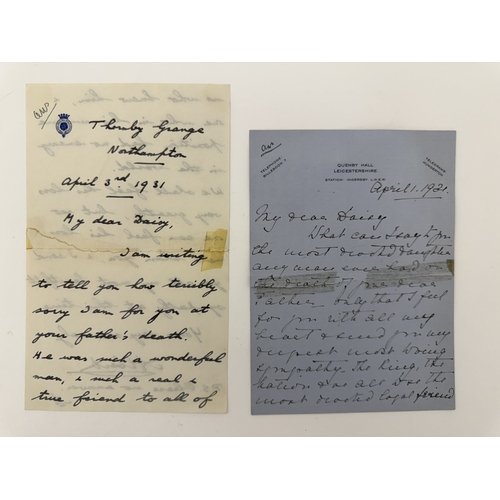 ans
Thornby Grange
Northampton
April 3rd 1931
My dear Daisy,
I am writing
to tell you how terribly
sorry I am for you at
your father's death.
He was such a wonderful
man, & such a real &
true friend to all of
ans
QUENBY HALL
LEICESTERSHIRE
STATION: INGERSBY, L.N.E.R.
TELEPHONE
TELEGRAMS
April 1. 1931
My dear Daisy
What can I say to you
the most devoted daughter
any man ever had
the death of your dear
father. Only that I feel
for you with all my
heart & send you my
deepest most loving
sympathy. The King, the
Nation & we all lose the
most devoted loyal friend